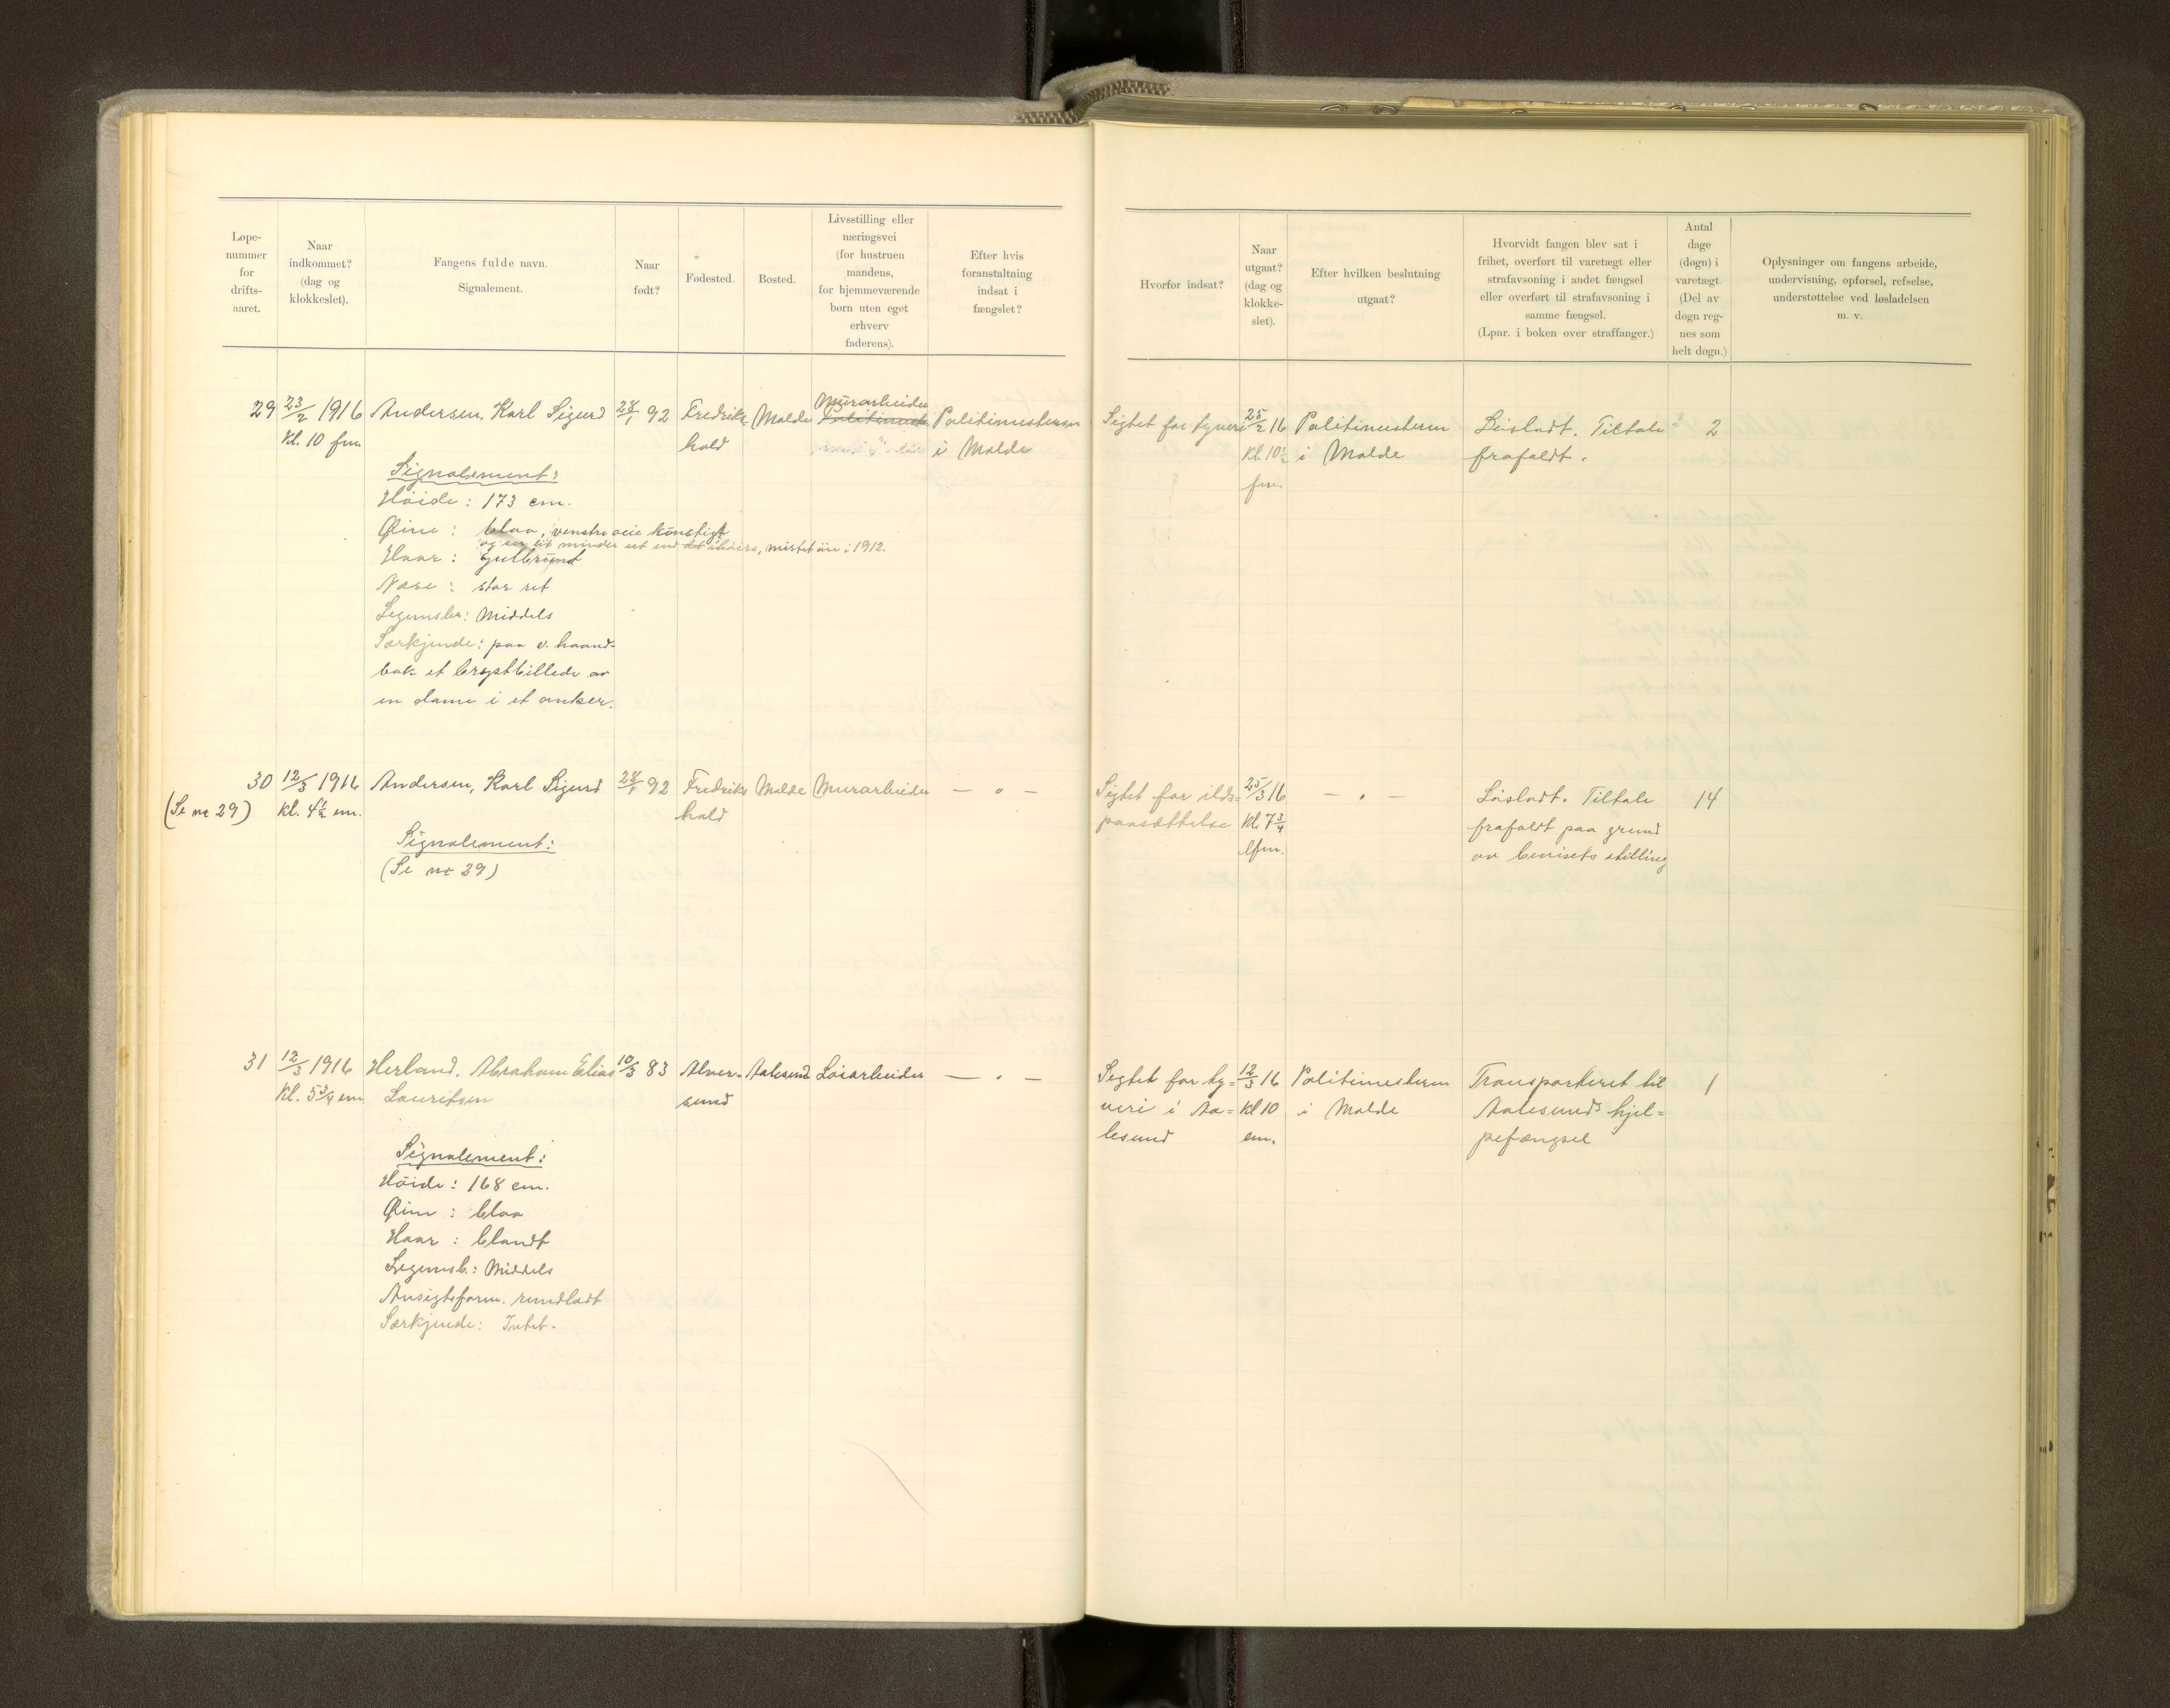 Løpe-
nummer
for
drifts-
aaret.
Naar
indkommet?
(dag og
klokkeslet).
Fangens fulde navn.
Signalement.
Naar
født?
Fødested.
Bosted.
Livsstilling eller
næringsvei
(for hustruen
mandens,
for hjemmeværende
børn uten eget
erhverv
faderens).
Efter hvis
foranstaltning
indsat i
fængslet?
Hvorfor indsat?
Naar
utgaat?
(dag og
klokke-
slet).
Efter hvilken beslutning
utgaat?
Hvorvidt fangen blev sat i
frihet, overført til varetægt eller
strafavsoning i andet fængsel
eller overført til strafavsoning i
samme fængsel.
(Lpnr. i boken over straffanger.)
Antal
dage
(døgn) i
varetægt.
(Del av
døgn reg-
nes som
helt døgn.)
Oplysninger om fangens arbeide,
undervisning, opførsel, refselse,
understøttelse ved løsladelsen
m. v.
29
23/2 1916
Kl. 10 fm
Andersen, Karl Sigurd
Signalement:
Höide: 173 cm.
Øine: blaa, venstre øeie kŭnstigt
og en lit mindre ut end det höire, mistet öie i 1912.
Haar: gulbrŭnt
Næse: stor ret
Legemsbr: Middels
Særkjende: paa v. haand-
bak et brystbillede av
en dame i et anker.
28/1 92
Fredriks
hald
Molde
Mŭrarbeider
Politimesteren
i Molde
Sigtet for tyveri
25/2 16
Kl. 10½
fm.
Politimesteren
i Molde
Løsladt. Tiltale
frafaldt.
2
30
(Se nr 29)
12/3 1916
Kl. 4½ em.
Andersen, Karl Sigurd
Signalement:
(Se nr 29)
28/1 92
Fredriks
hald
Molde
Murarbeider
— " —
Sigtet for ilds=
paasættelse
25/3 16
Kl. 7¾
efm.
— " —
Løsladt. Tiltale
frafaldt paa grund
av bevisets stilling
14
31
12/3 1916
Kl. 5¾ em
Herland, Abraham Elias
Lauritsen
Signalement:
Höide: 168 cm.
Øine: blaa
Haar: blandt
Legemsb.: Middels
Ansigtsform. rundladt
Særkjende: Intet.
10/3 83
Alver=
sund
Aalesund
Løsarbeider
— " —
Sigtet for ty=
veri i Aa=
lesund
12/3 16
Kl 10
em.
Politimesteren
i Molde
Transporteret til
Aalesunds hjel=
pefængsel
1